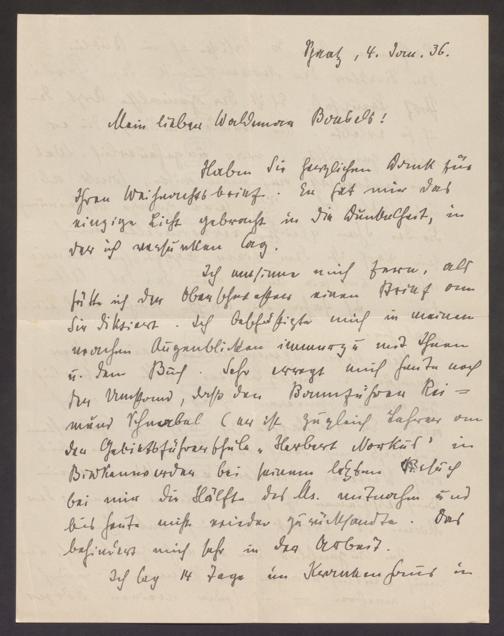 Graetz, 4. Jan. 36.
Mein lieber Waldemar Bonsels!
Haben Sie herzlichen Dank für
Ihren Weihnachtsbrief. Er hat mir das
einzige Licht gebracht in die Dunkelheit, in
der ich versunken lag.
Ich entsinne mich fern, als
hätte ich der Oberschwester einen Brief an
Sie diktiert. Ich beschäftigte mich in meinen
wachen Augenblicken immerzu mit Ihnen
u. dem Buch. Sehr erregt mich heute noch
der Umstand, daß der Bannführer Rei=
mund Schnabel (er ist zugleich Lehrer an
der Gebietsführerschule „Herbert Norkus" in
Birkenwerder bei seinem letzten Besuch
bei mir die Hälfte des Ms. mitnahm und
bis heute nicht wieder zurücksandte. Das
behindert mich sehr in der Arbeit.
Ich lag 14 Tage im Krankenhaus in